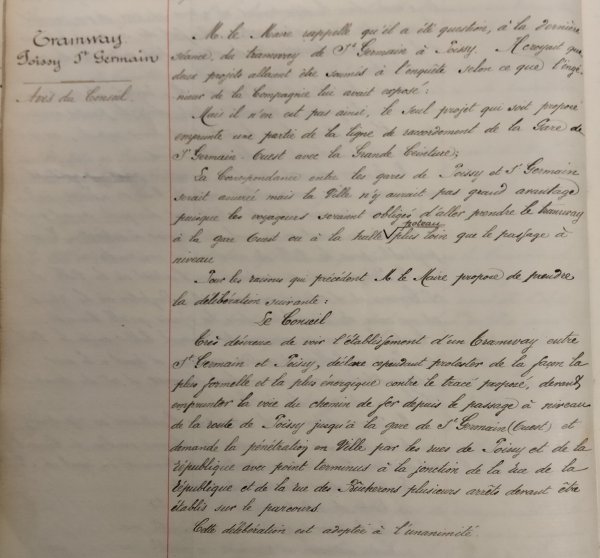 Tramway
Poissy St Germain
Avis du Conseil.
M. le Maire rappelle qu'il a été question, à la dernière
séance, du tramway de St Germain à Poissy. Il croyait que
deux projets allaient être soumis à l'enquête selon ce que l'ingé-
nieur de la Compagnie lui avait exposé :
Mais il n'en est pas ainsi, le seul projet qui soit proposé
emprunte une partie de la ligne de raccordement de la Gare de
St Germain-Ouest avec la Grande Ceinture ;
La Correspondance entre les gares de Poissy et St Germain
serait assurée mais la Ville n'y aurait pas grand avantage
puisque les voyageurs seraient obligés d'aller prendre le tramway
poteau
à la gare Ouest ou à la halte plus loin que le passage à
niveau
Pour les raisons qui précèdent M. le Maire propose de prendre
la délibération suivante :
Le Conseil
Très désireux de voir l'établissement d'un Tramway entre
St Germain et Poissy, déclare cependant protester de la façon la
plus formelle et la plus énergique contre le tracé proposé, devant
emprunter la voie du chemin de fer depuis le passage à niveau
de la route de Poissy jusqu'à la gare de St Germain (Ouest) et
demande la pénétration en Ville par les rues de Poissy et de la
République avec point terminus à la jonction de la rue de la
République et de la rue des Bûcherons plusieurs arrêts devant être
établis sur le parcours.
Cette délibération est adoptée à l'unanimité.